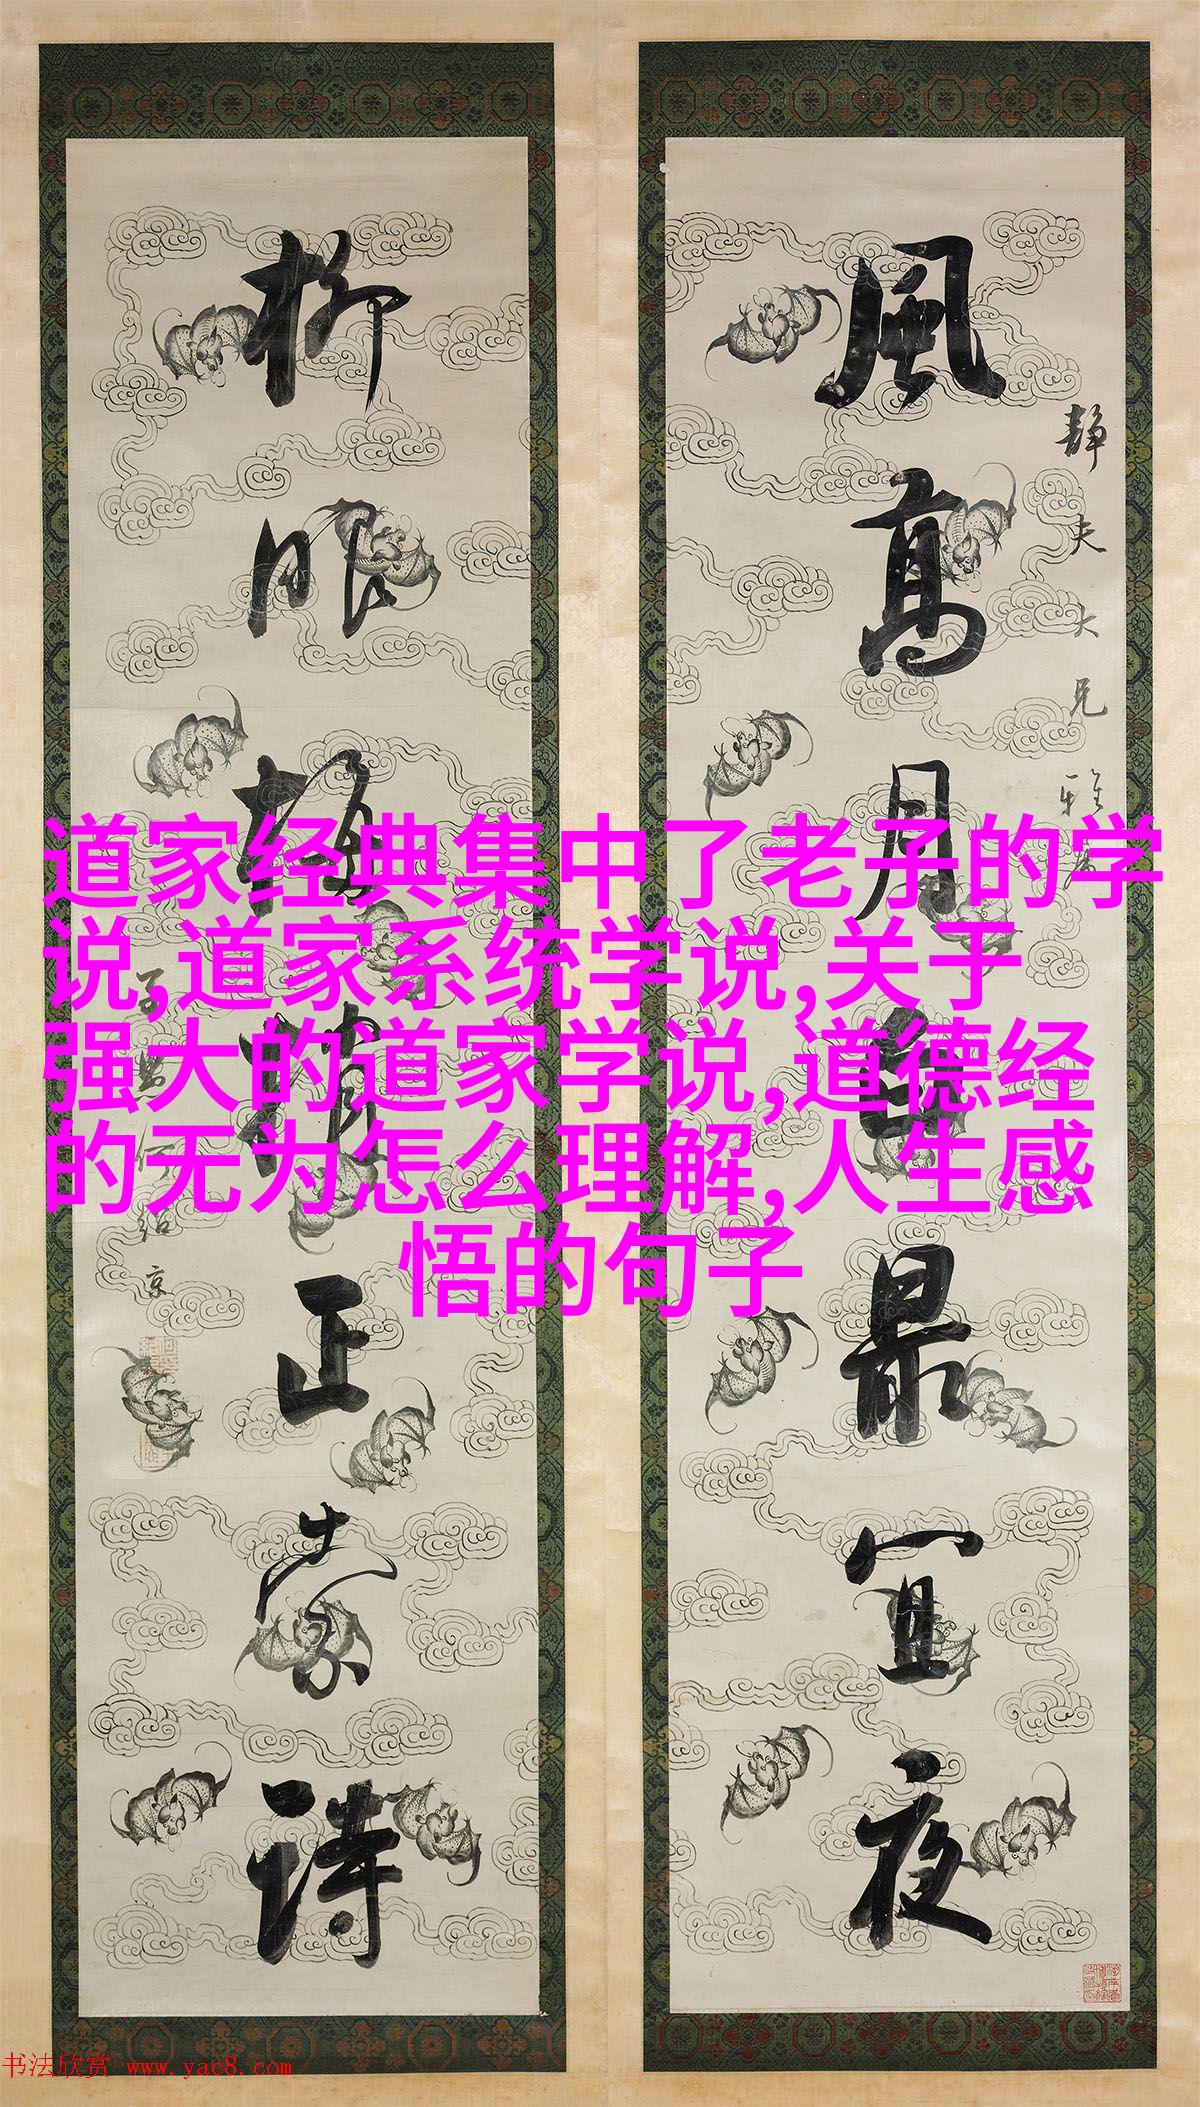 道家经典集中了老子的学
说,道家系统学说,关于
强大的道家学说,道德经
的无为怎么理解,人生感
悟的句子
静夫大兄雅
風高月白最宜夜
柳眼梅梢正索詩
子愚何紹京
书法欣赏 www.yac8.com